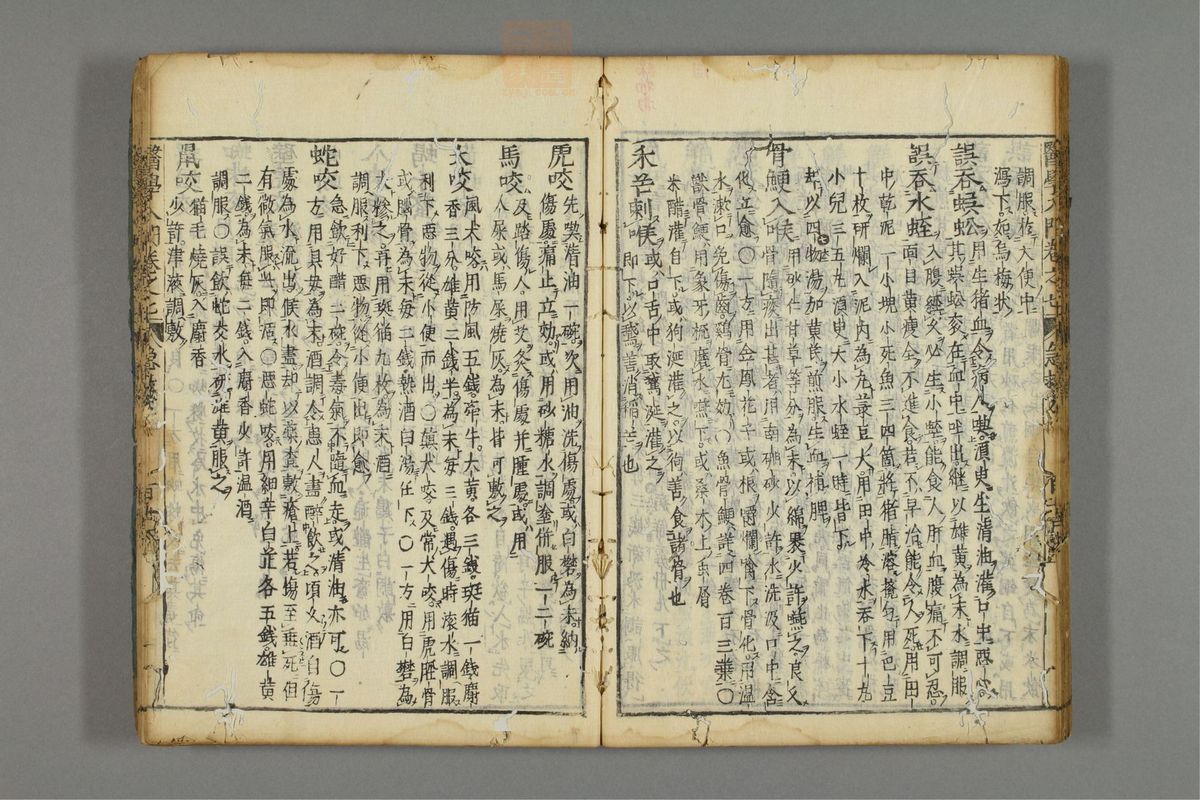 調服。後入便中
瀉下。如烏梅狀
誤吞蜈蚣用生猪血。令病人喫。須臾生清油灌口中惡心。
其蜈蚣衮在血中吐出。繼以雄黃為末水調服
誤吞水蛭入腹經久。必生小蛭。能食人肝血。腹痛不可忍。
面目黃瘦。全不進食。若不早治能令人死。用田
中乾泥一小塊小死魚三四箇。將猪脂溶攪勻用巴豆
十枚研爛入泥內為丸菉豆大。用田中冷水吞下十丸
小兒三五丸。須臾大小水蛭一時皆下。
却以四物湯加黃芪煎服。生血補脾
骨鯁入喉用砂仁甘草等分為末。以綿裹少許嚥之。良久
骨隨痰出。甚者用南硼砂少許水洗汲口中含
化立愈。〇一方用金鳳花子或根嚼爛噙下骨化。用溫
水漱口。免傷齒。鷄骨尤妙。〇魚骨鯁。詳四卷百三葉〇
獸骨鯁用象牙梳磨水嚥下。或桑木上虫屑
米醋灌自下。或狗涎灌之。以狗善食諸骨也
禾芒刺喉或口舌中。取鵞涎灌之
即下。以鵞善消稻芒也
醫學入門卷之七 急救
虎咬先喫清油一碗。次用油洗傷處。或白礬為末納
傷處。痛止立効。或用砂糖水調塗併服一二碗
馬咬及踏傷人。用艾灸傷處并腫處。或用
人屎或馬屎燒灰為末。皆可敷之
犬咬風犬咬用防風五錢。牽牛。大黃。各三錢。斑猫一錢麝
香三分。雄黃二錢半為末。每三錢。遇傷時滚水調服
利下。惡物從小便而出。〇癲犬咬及常犬咬。用虎脛骨
或腦骨為末每二錢熱酒白湯任下。〇一方用白礬為
末糝之。再用斑猫九枚為末酒
調服利下。惡物從小便出即愈
蛇咬急飲好醋二碗。令毒氣不隨血走。或清油亦可。〇一
方用貝母為末酒調令患人盡醉飲之。頃久酒自傷
處為水流出。候水盡却以藥查敷瘡上。若傷至垂死但
有微氣服此即活。〇惡蛇咬。用細辛白芷各五錢。雄黃
二錢為末。每二錢。入麝香少許溫酒
調服〇誤飲蛇交水。研雄黃服之
鼠咬猫毛燒灰入麝香
少許津液調敷
醫學入門卷之七 急救